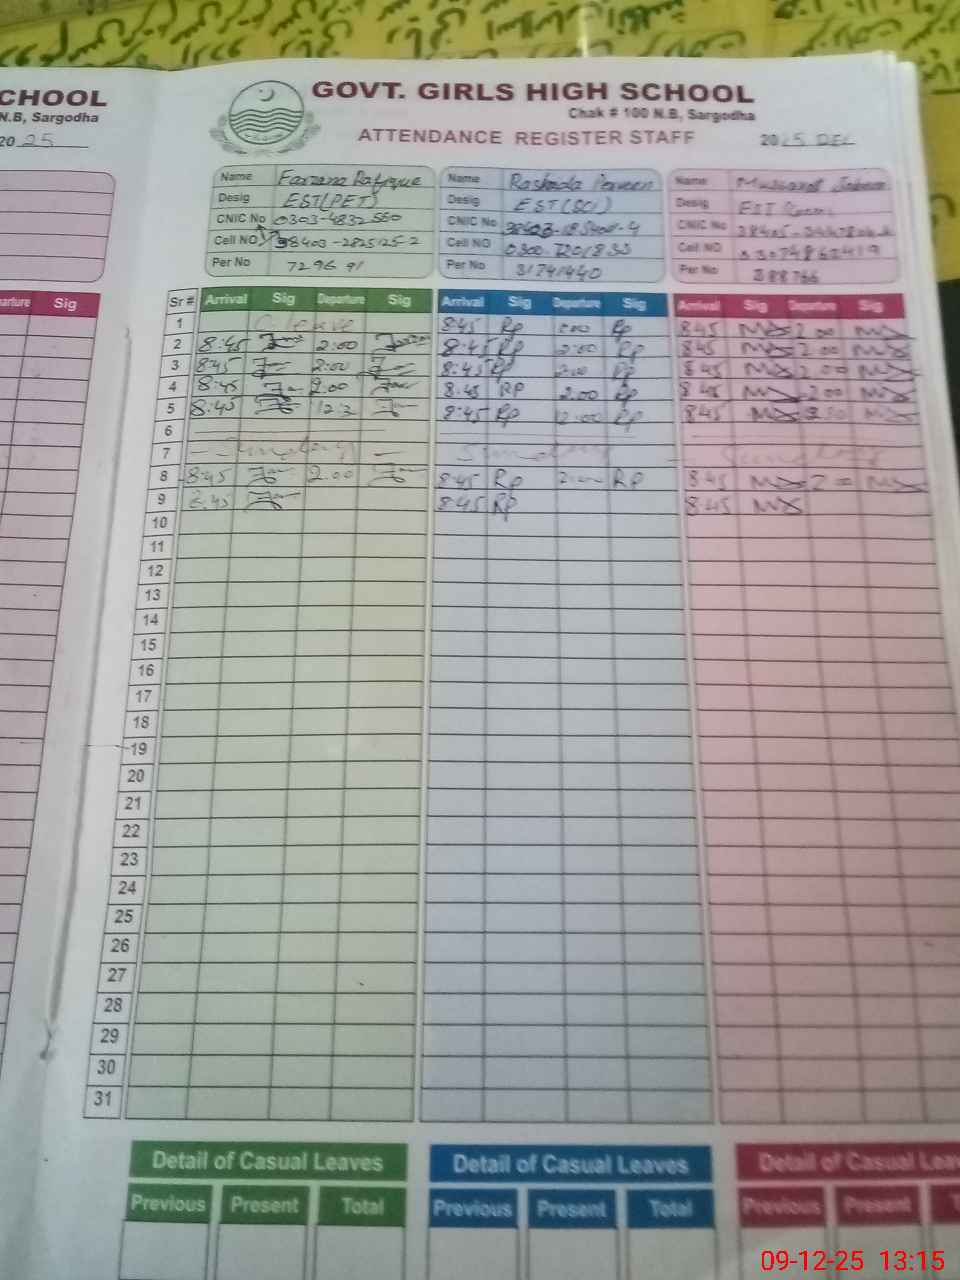 CHOOL
N.B, Sargodha
2025
arture Sig
GOVT. GIRLS HIGH SCHOOL
Chak # 100 N.B, Sargodha
ATTENDANCE REGISTER STAFF
2025 DEC
Name Farzana Rafique
Desig EST(PET)
CNIC No 0303-4832560
Cell NO 38403-2825125-2
Per No 729691
Name Rasheda Parveen
Desig EST(SCI)
CNIC No
Cell NO
Per No 31741440
Name Mussarat
Desig EST
CNIC No
Cell NO 03074862419
Per No 388766
Sr # Arrival Sig Departure Sig Arrival Sig Departure Sig Arrival Sig Departure Sig
1 C leave 8:45 Rp Rp 8:45 2:00
2 8:45 2:00 8:45 Rp 2:00 Rp 8:45 2:00
3 8:45 2:00 8:45 Rp 2:00 Rp 8:45 2:00
4 8:45 2:00 8:45 RP 2:00 Rp 8:45 2:00
5 8:45 8:45 Rp 12:00 Rp 8:45
6
7 Sunday Sunday Sunday
8 8:45 2:00 8:45 Rp 2:00 Rp 8:45 2:00
9 8:45 8:45 Rp 8:45
10
11
12
13
14
15
16
17
18
19
20
21
22
23
24
25
26
27
28
29
30
31
Detail of Casual Leaves Detail of Casual Leaves Detail of Casual Lea
Previous Present Total Previous Present Total Previous Present T
09-12-25 13:15